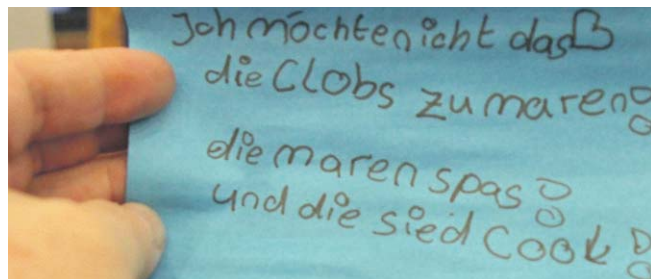 Ich möchte nicht das
die Clobs zu maren
die maren spas
und die sied Cool